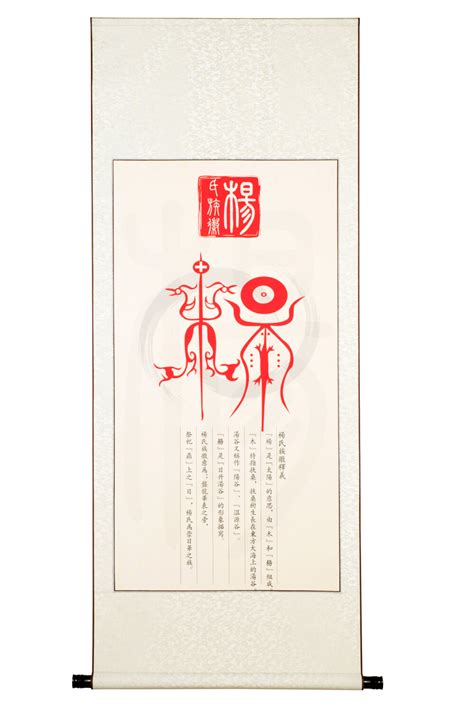 楊
氏族徽
楊氏族徽釋義
「楊」是「太陽」的意思，由「木」和「昜」組成，
「木」特指扶桑，扶桑樹生長在東方大海上的湯谷，
湯谷又稱作「陽谷」、「溫源谷」。
「昜」是「日升湯谷」的形象描寫。
楊氏族徽意為：龍華表之帝，
祭「」上之「日」，楊氏為崇日華之族。